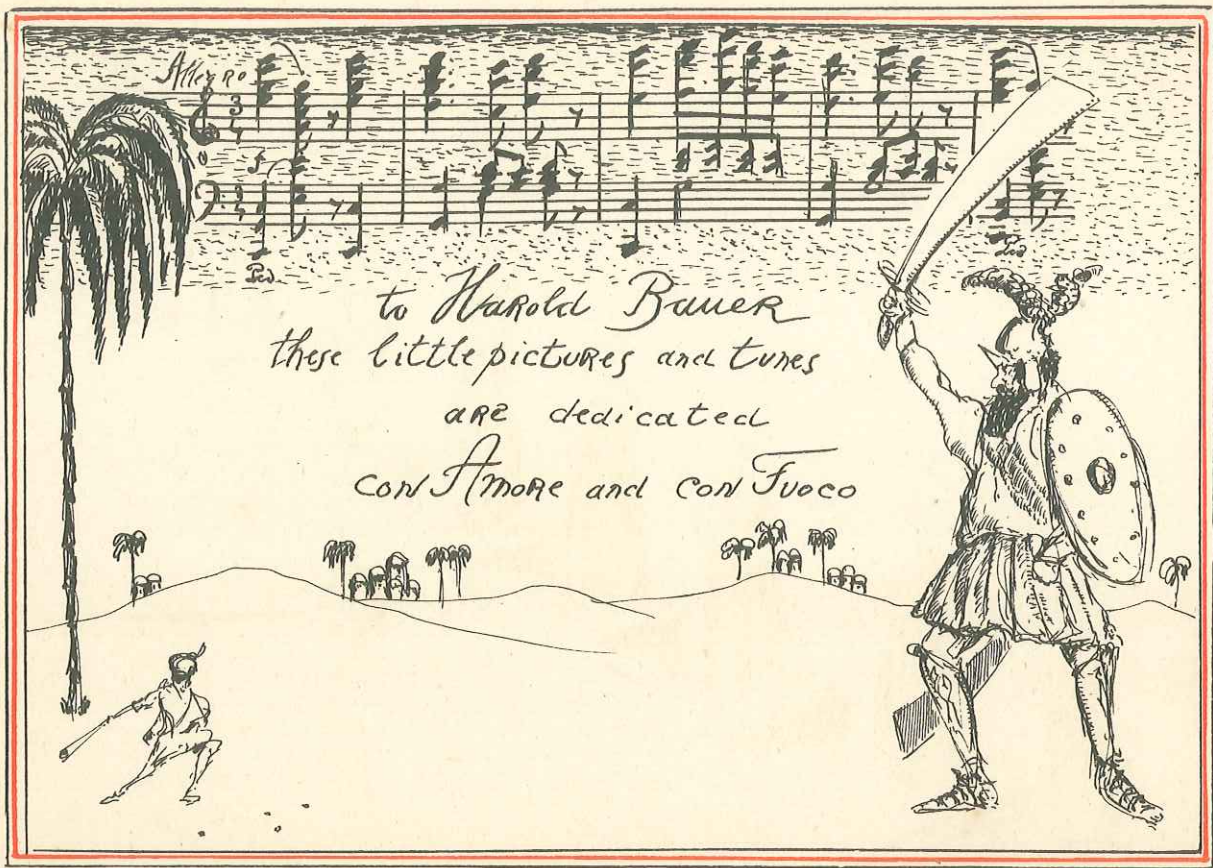 Allegro
3
4
3
4
Ped
Ped
to Harold Bauer
these little pictures and tunes
are dedicated
con Amore and con Fuoco